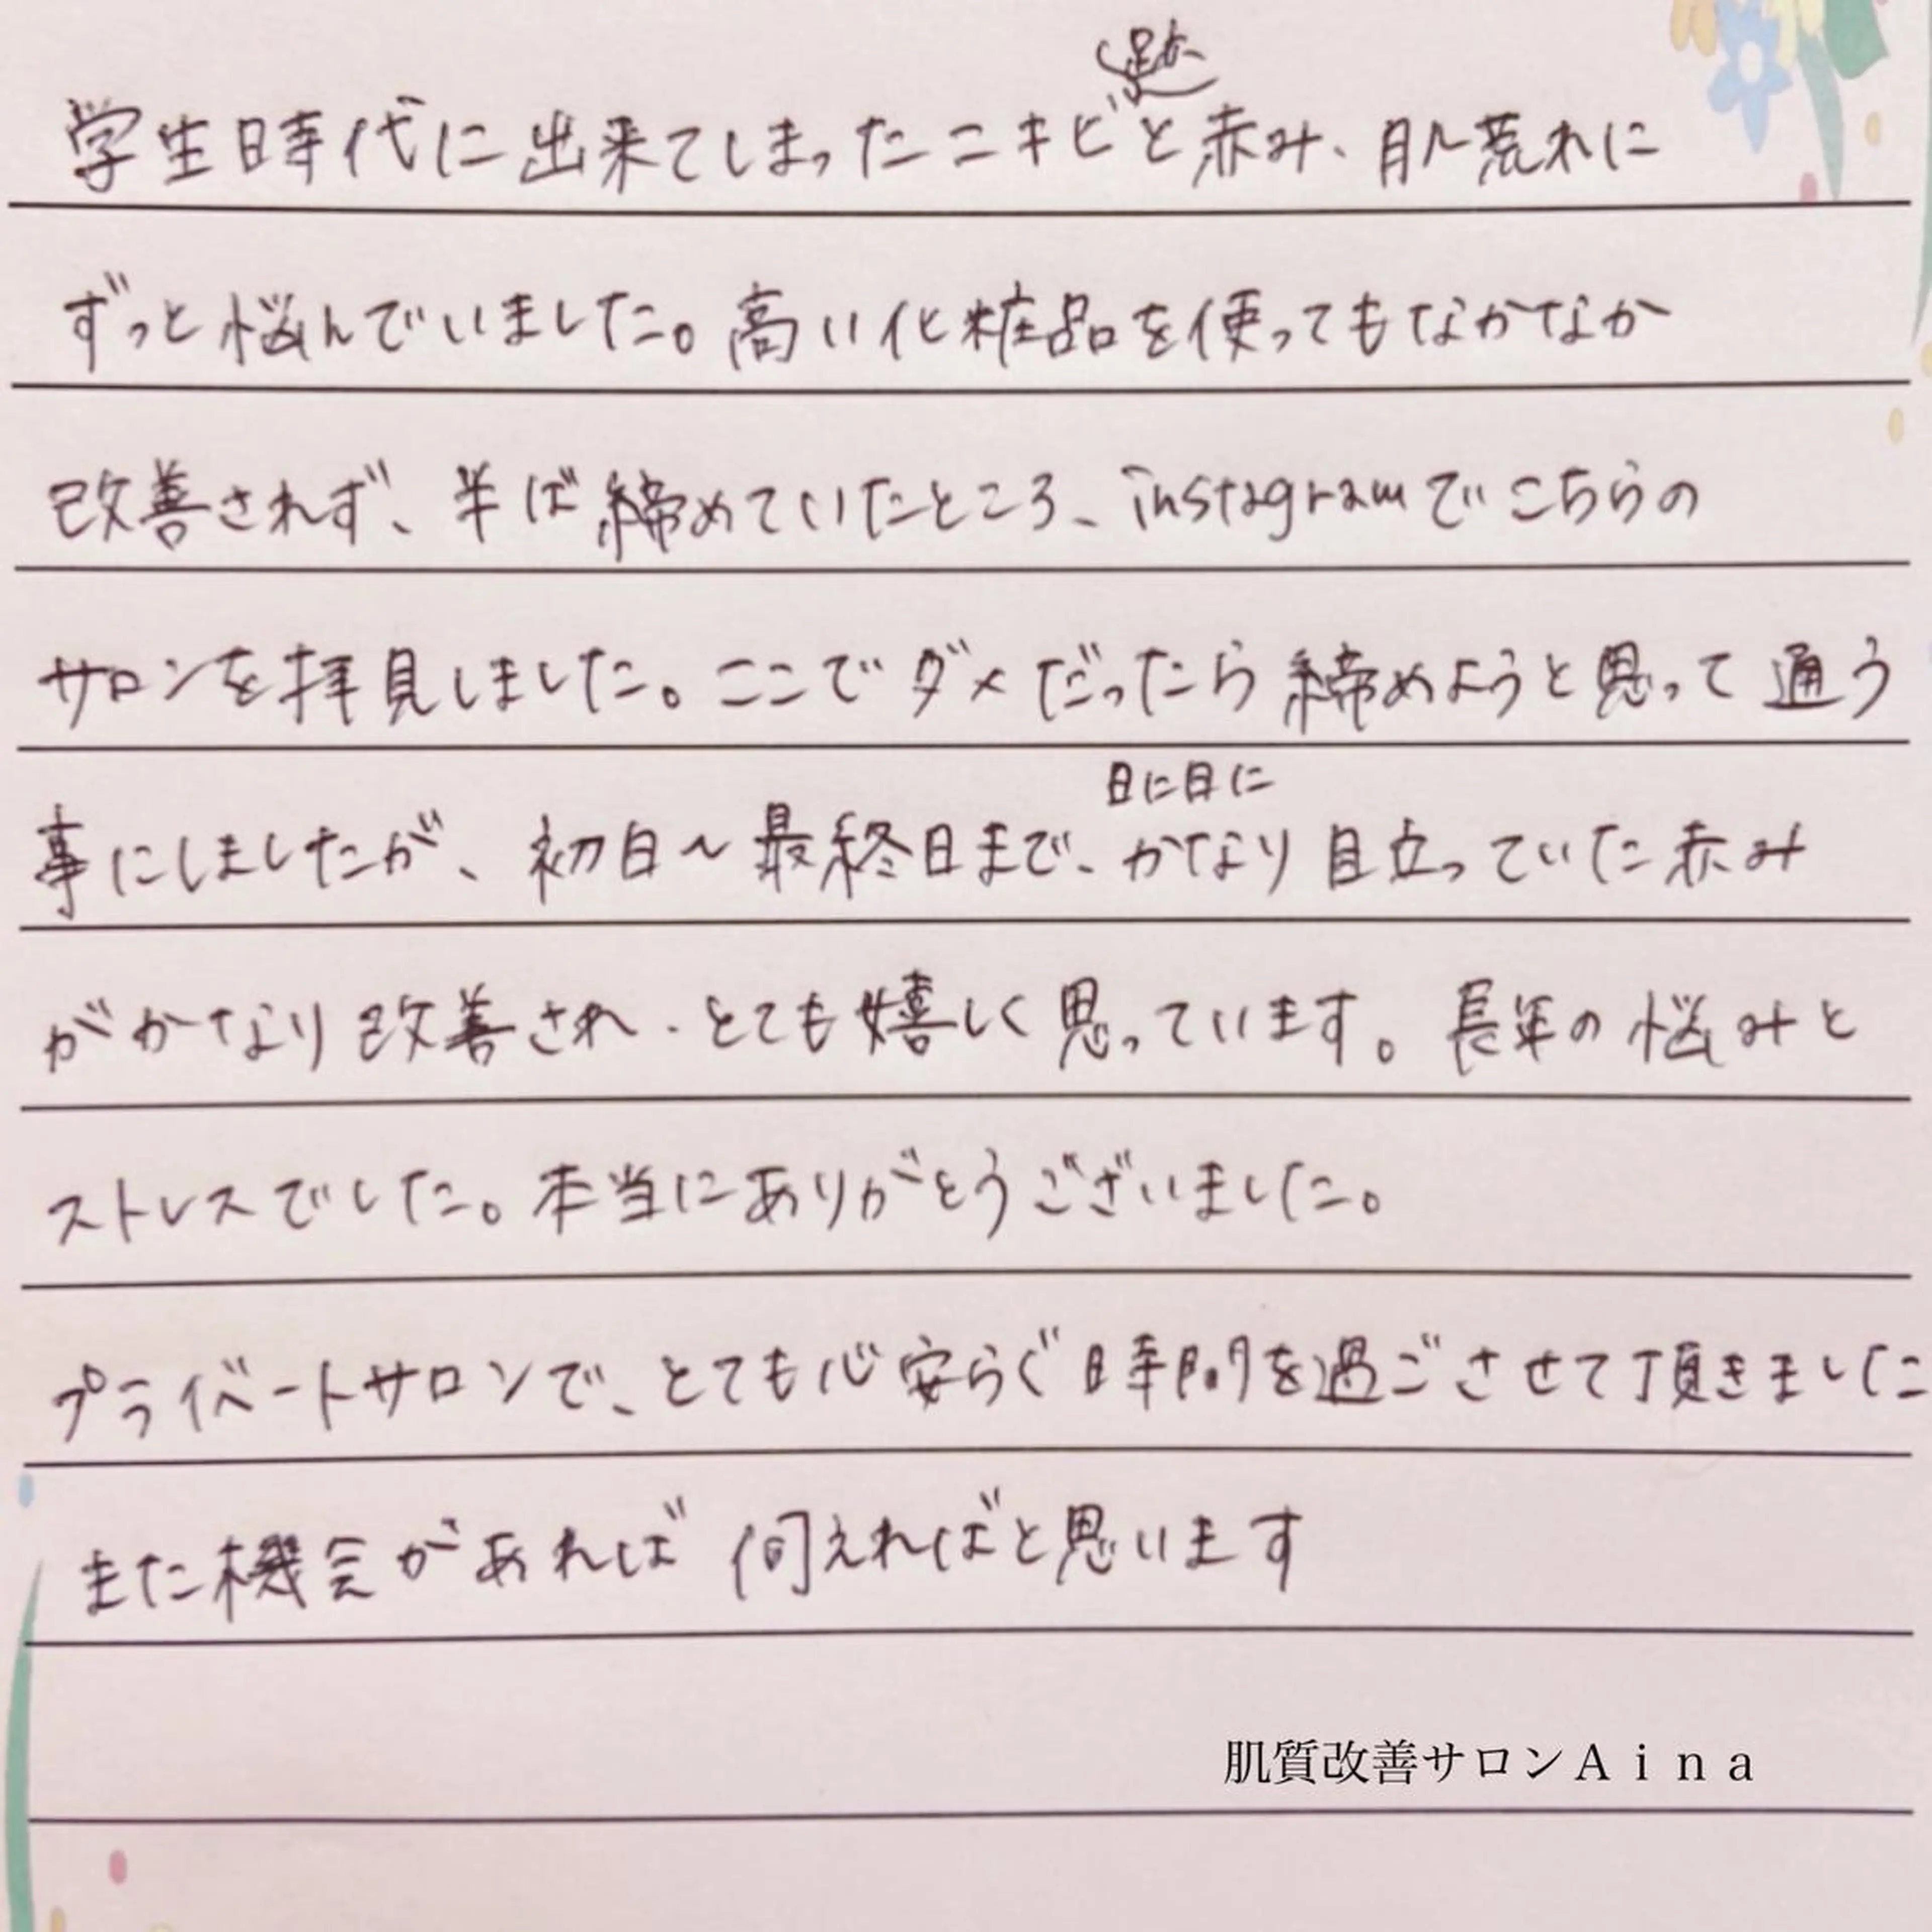 学生時代に出来てしまったニキビ跡と赤み、肌荒れに
ずっと悩んでいました。高い化粧品を使ってもなかなか
改善されず、半ば締めていたところ、instagramでこちらの
サロンを拝見しました。ここでダメだったら締めようと思って通う
事にしましたが、初日〜最終日まで、日に日にかなり目立っていた赤み
がかなり改善され、とても嬉しく思っています。長年の悩みと
ストレスでした。本当にありがとうございました。
プライベートサロンで、とても心安らぐ時間を過ごさせて頂きました
また機会があれば伺えればと思います
肌質改善サロンAina